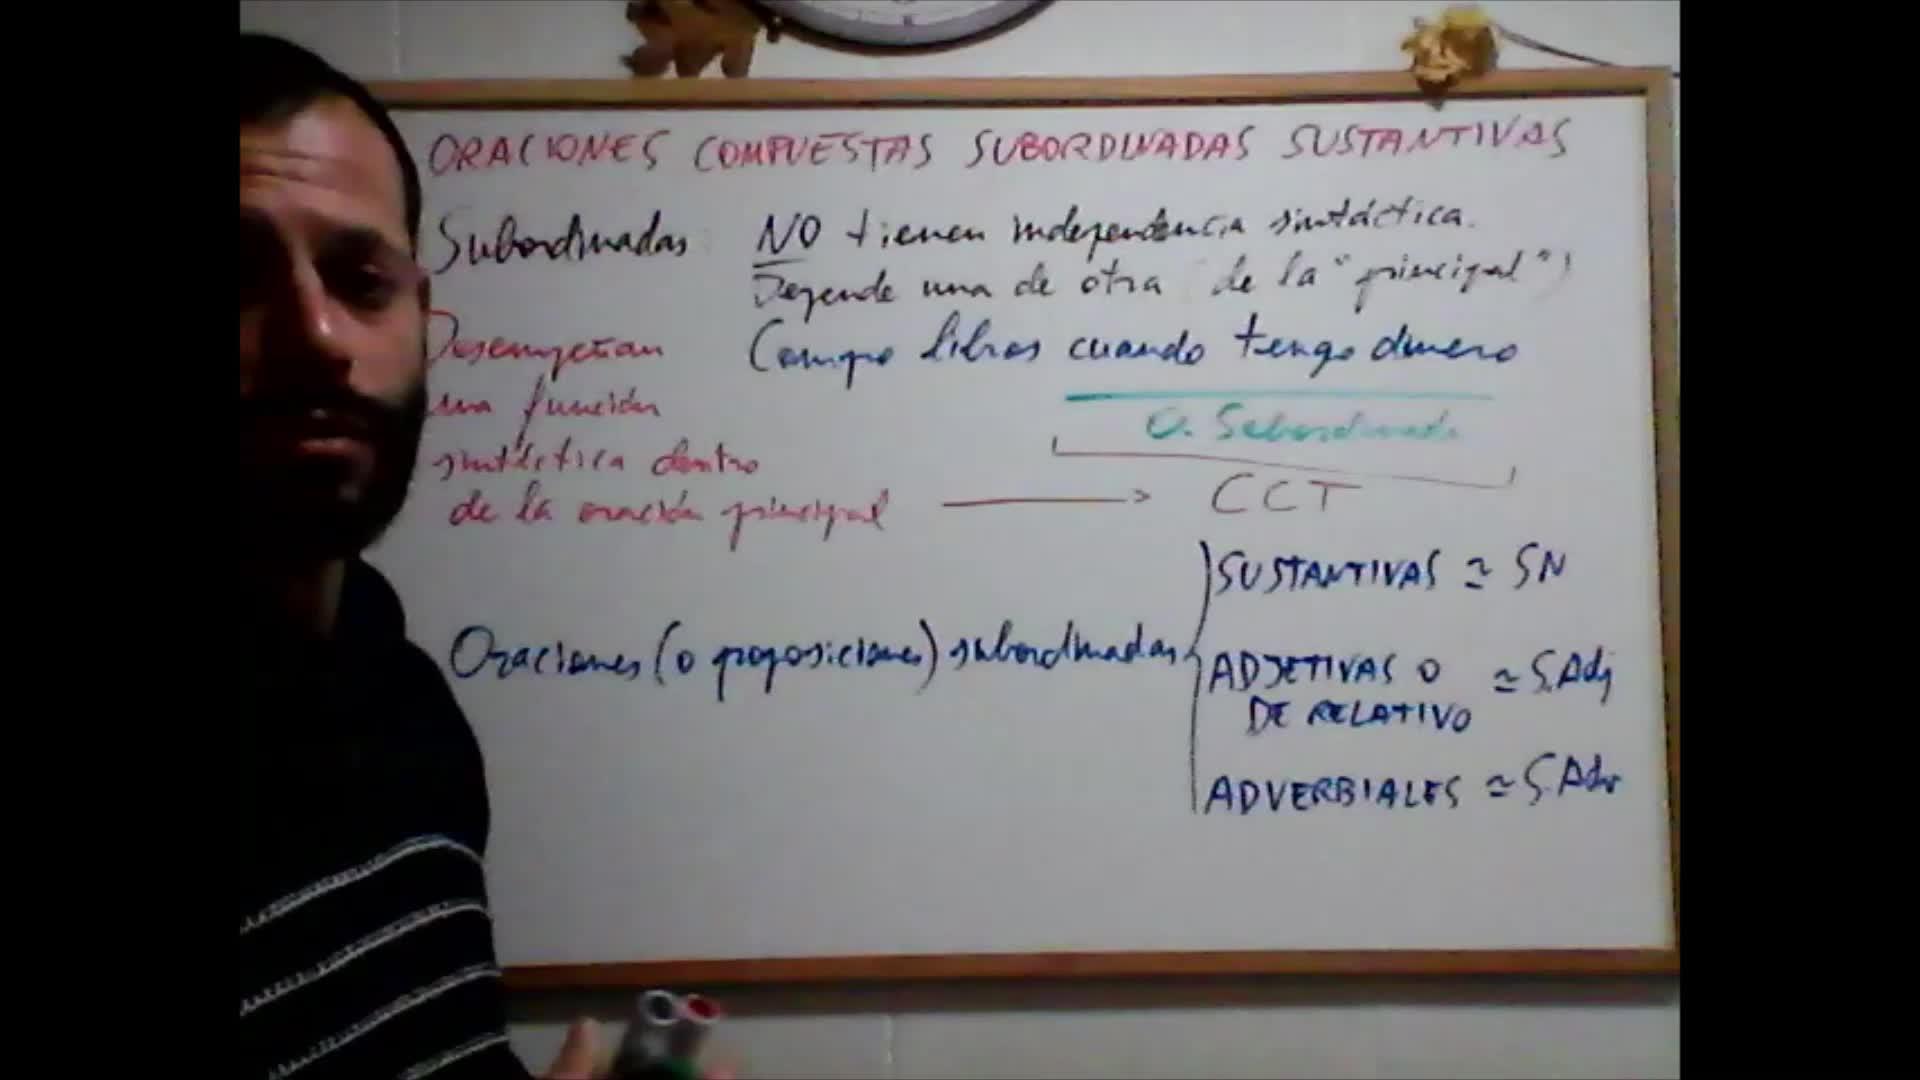 ORACIONES COMPUESTAS SUBORDINADAS SUSTANTIVAS
Subordinadas: NO tienen independencia sintáctica.
Depende una de otra (de la "principal")
Desempeñan
una función
sintáctica dentro
de la oración principal
Compro libros cuando tengo dinero
O. Subordinada
CCT
Oraciones (o proposiciones) subordinadas
SUSTANTIVAS ≃ SN
ADJETIVAS O ≃ S.Adj
DE RELATIVO
ADVERBIALES ≃ S.Adv